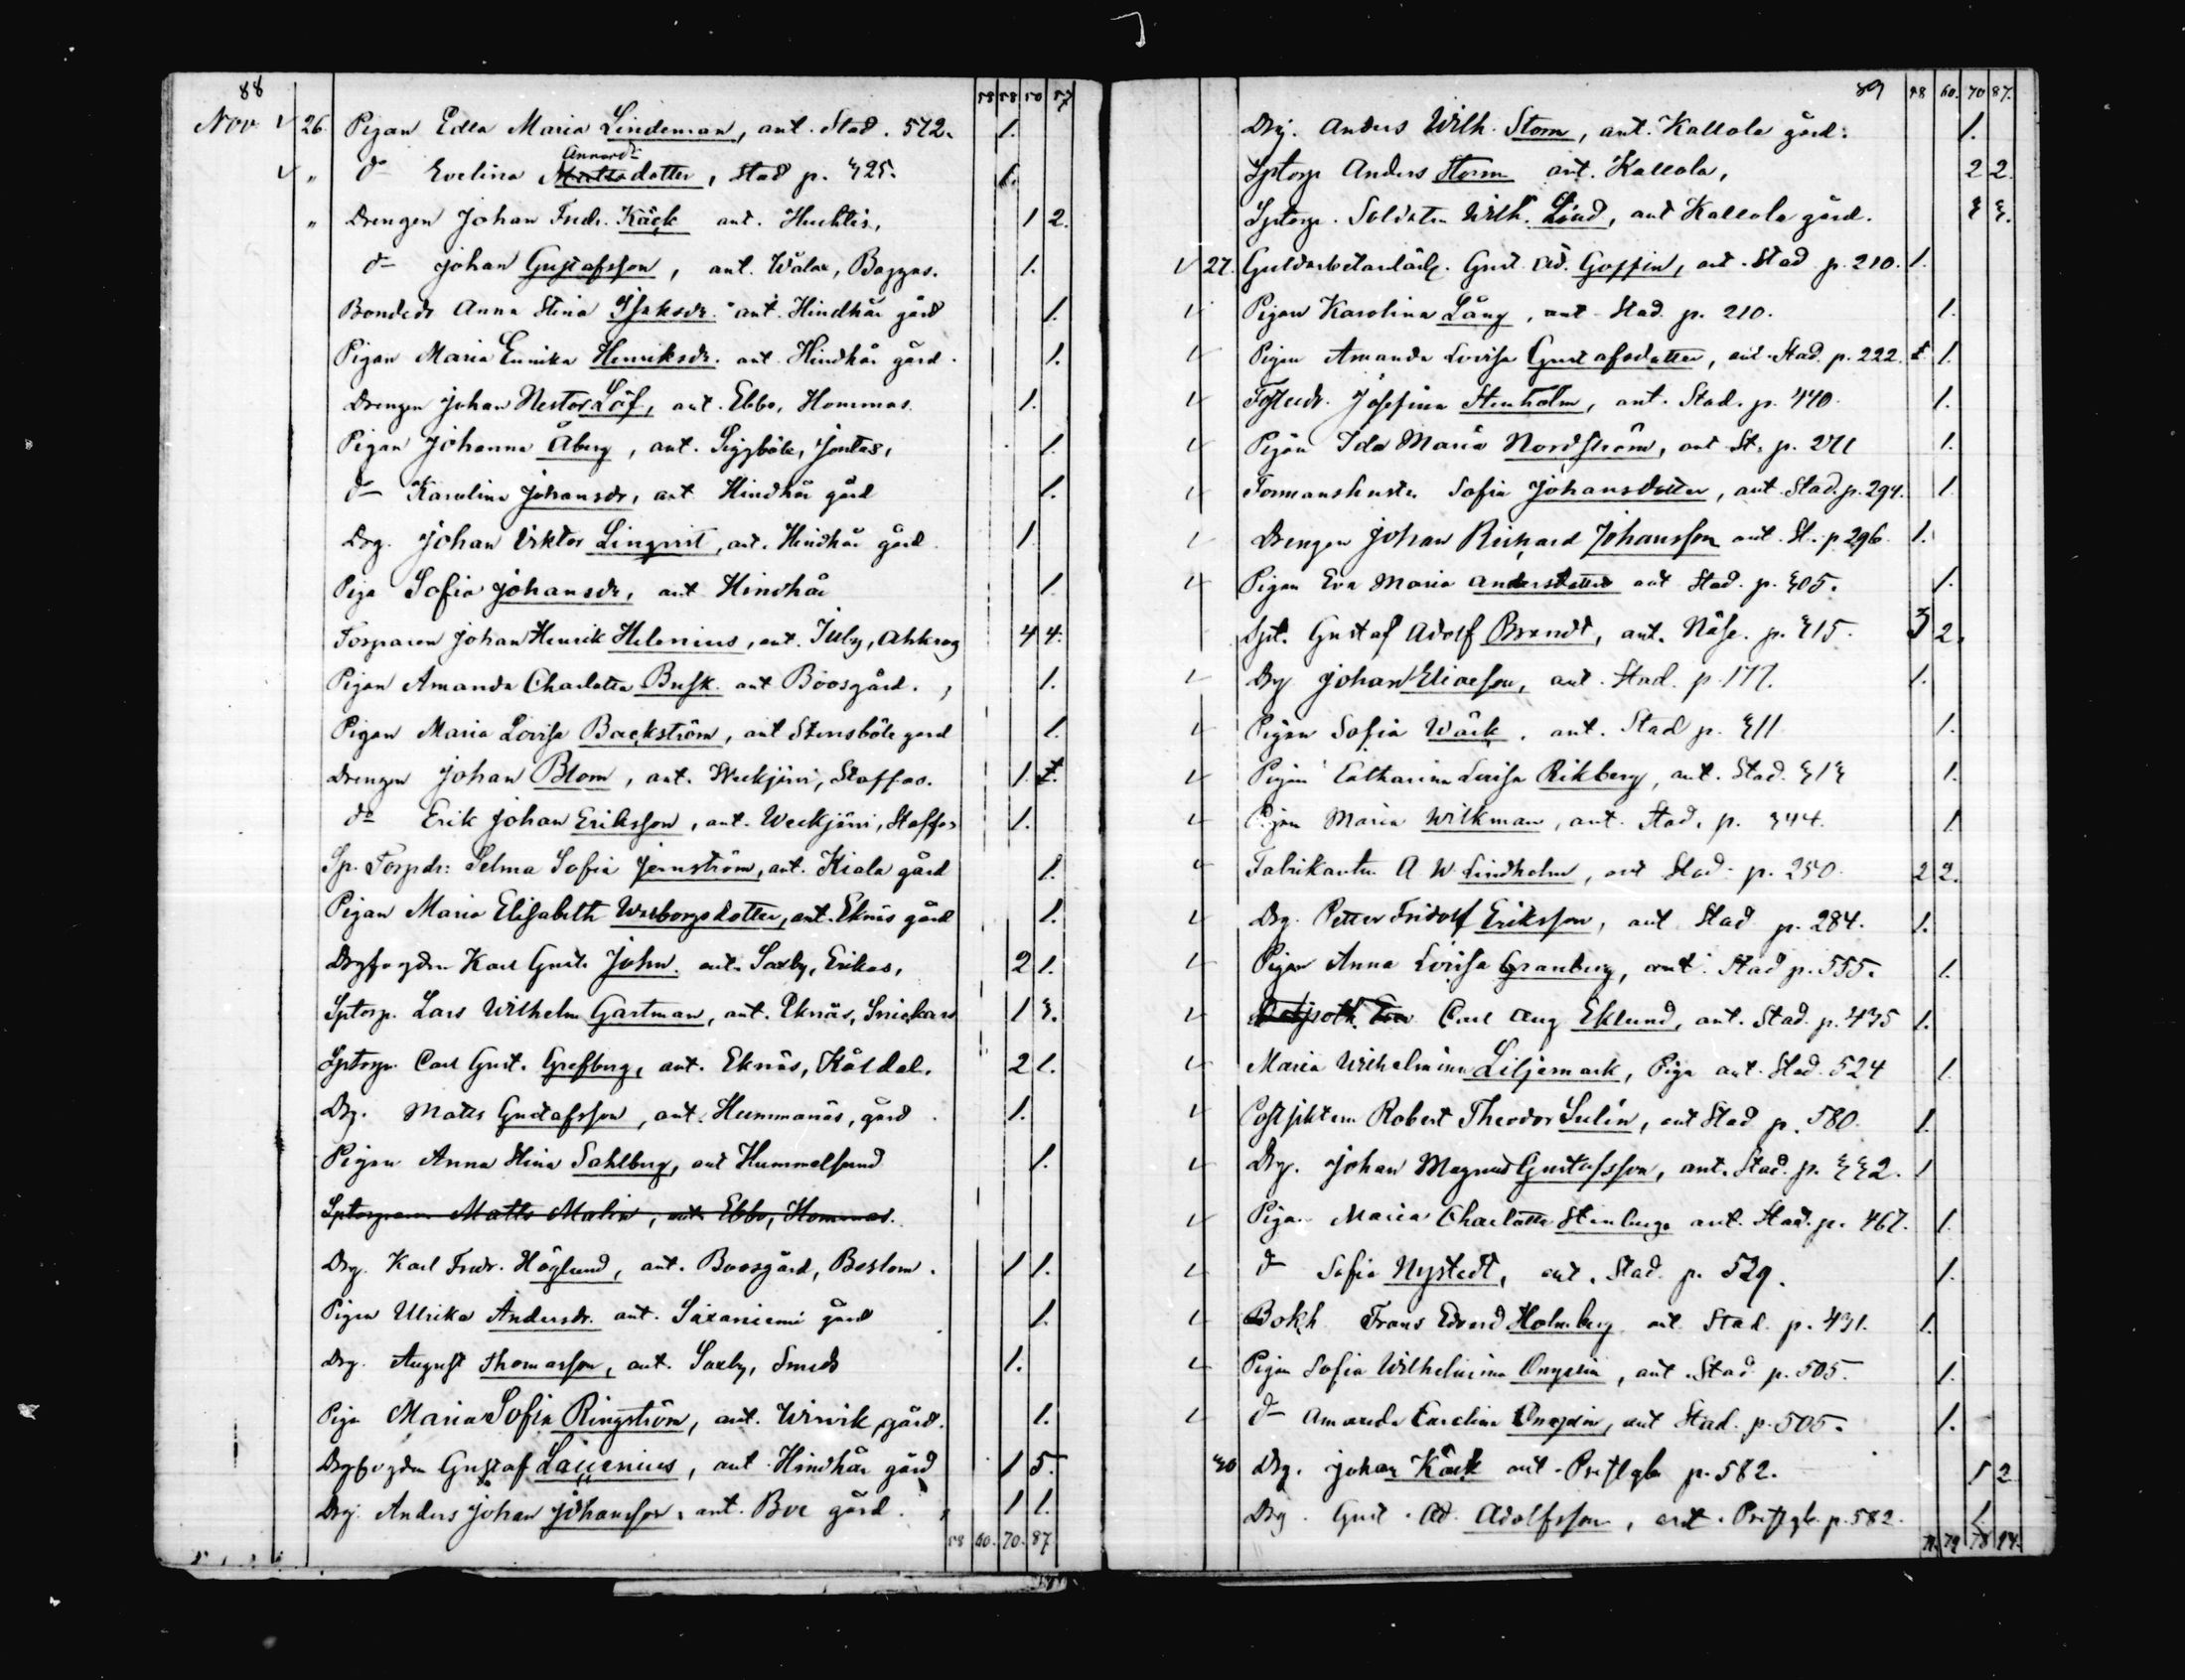 88
58 58 70 87
Nov 26 Pigan Edla Maria Lindeman, ant. Stad. 572. 1.
" do Evelina Annersd. Mattsdotter, Stad p. 325. 1.
" Drengen Johan Fredr. Käck ant. Huchtis, 1 2.
do Johan Gustafsson, ant. Wålax, Baggas. 1.
Bondedr Anna Stina Isaksdr. ant. Hindhår gård 1.
Pigan Maria Ennika Henriksdr. ant. Hindhår gård. 1.
Drengen Johan Nestor Löf, ant. Ebbo, Hommas. 1.
Pigan Johanna Åberg, ant. Siggböle, Jontas, 1.
do Karolina Johansdr, ant Hindhår gård 1.
Drg. Johan Viktor Linqvist, ant. Hindhår gård 1
Piga Sofia Johansdr, ant Hindhår 1
Torparen Johan Henrik Helenius, ant. Juby, Ahkrog 4 4.
Pigan Amanda Charlotta Busk ant Boosgård. 1.
Pigan Maria Lovisa Backström, ant Stensböle gård 1.
Drengen Johan Blom, ant. Weckjärvi, Staffas. 1.
do Erik Johan Eriksson, ant. Weckjärvi, Staffas 1.
Sp. Torpdr: Selma Sofia Jernström, ant. Kiala gård 1.
Pigan Maria Elisabeth Warborgsdotter, ant. Eknäs gård 1.
Drgfogden Karl Gust. John. ant. Saxby, Erikas, 2 1.
Sptorp. Lars Wilhelm Gartman, ant. Eknäs, Snickars 1 3.
Sptorp. Carl Gust. Grefberg, ant. Eknäs, Kårdal. 2 1.
Drg. Matts Gustafsson, ant. Hummanäs, gård 1.
Pigan Anna Stina Sahlberg, ant Hummelsund 1.
Sptorparen Matts Malin, ant Ebbo, Hommas.
Drg. Karl Fredr. Höglund, ant. Boosgård, Boslom. 1 1.
Pigan Ulrika Andersdr. ant. Saxaniemi gård 1.
Drg. August Thomasson, ant. Saxby, Smeds 1.
Piga Maria Sofia Ringström, ant. Wirvik gård. 1.
Drgfogden Gustaf Laurenius, ant Hindhår gård 1 5.
Drg. Anders Johan Johansson, ant. Boe gård. 1 1.
58 60. 70. 87
89 58 60. 70 87.
Drg. Anders Wilh. Storm, ant. Kallola gård. 1.
Sptorp Anders Storm ant. Kallola, 2 2.
Sptorp. Soldaten Wilh. Lind, ant Kallola gård. 3 3.
27. Guldarbetarlärl. Gust. Ad. Goffin, ant. Stad p. 210. 1.
Pigan Karolina Lång, ant Stad. p. 210. 1.
Pigan Amanda Lovisa Gustafsdotter, ant. Stad. p. 222. 1.
Josefina Stenholm, ant. Stad. p. 440. 1.
Pigan Ida Maria Nordström, ant St. p. 271 1.
Formanshustr Sofia Johansdotter, ant. Stad. p. 294. 1
Drengen Johan Richard Johansson ant. St. p 296 1.
Pigan Eva Maria Andersdotter ant Stad. p. 305. 1.
Spt. Gustaf Adolf Brandt, ant. Näse. p. 315. 3 2.
Drg Johan Eliaeson, ant. Stad. p. 177. 1.
Pigan Sofia Wäck. ant. Stad p. 311 1.
Pigan Catharina Lovisa Rikberg, ant. Stad. 313 1.
Pigan Maria Wilkman, ant. Stad. p. 344. 1.
Fabrikanten A W Lindholm, ant Stad. p. 250. 2 2.
Drg. Petter Fridolf Eriksson, ant Stad p. 284. 1.
Pigan Anna Lovisa Granberg, ant. Stad p. 555. 1.
Carl Aug Eklund, ant. Stad. p. 435 1.
Maria Wilhelmina Liljemark, Piga ant. Stad. 524 1.
Robert Theodor Sulin, ant Stad p. 580. 1.
Drg. Johan Magnus Gustafsson, ant. Stad. p. 332. 1
Pigan Maria Charlotta Stenberg ant. Stad. p. 467. 1.
do Sofia Nystedt, ant. Stad. p. 529. 1.
Bokh Frans Edvard Holmberg ant Stad. p. 431. 1.
Pigan Sofia Wilhelmina Onypin, ant Stad p. 505. 1.
do Amanda Carolina Onypin, ant Stad. p. 505. 1.
30 Drg. Johan Käck ant. Prestgb p. 582. 1 2
Drg. Gust. Ad. Adolfsson, ant. Prestgb. p. 582. 1
71. 79 78 94.